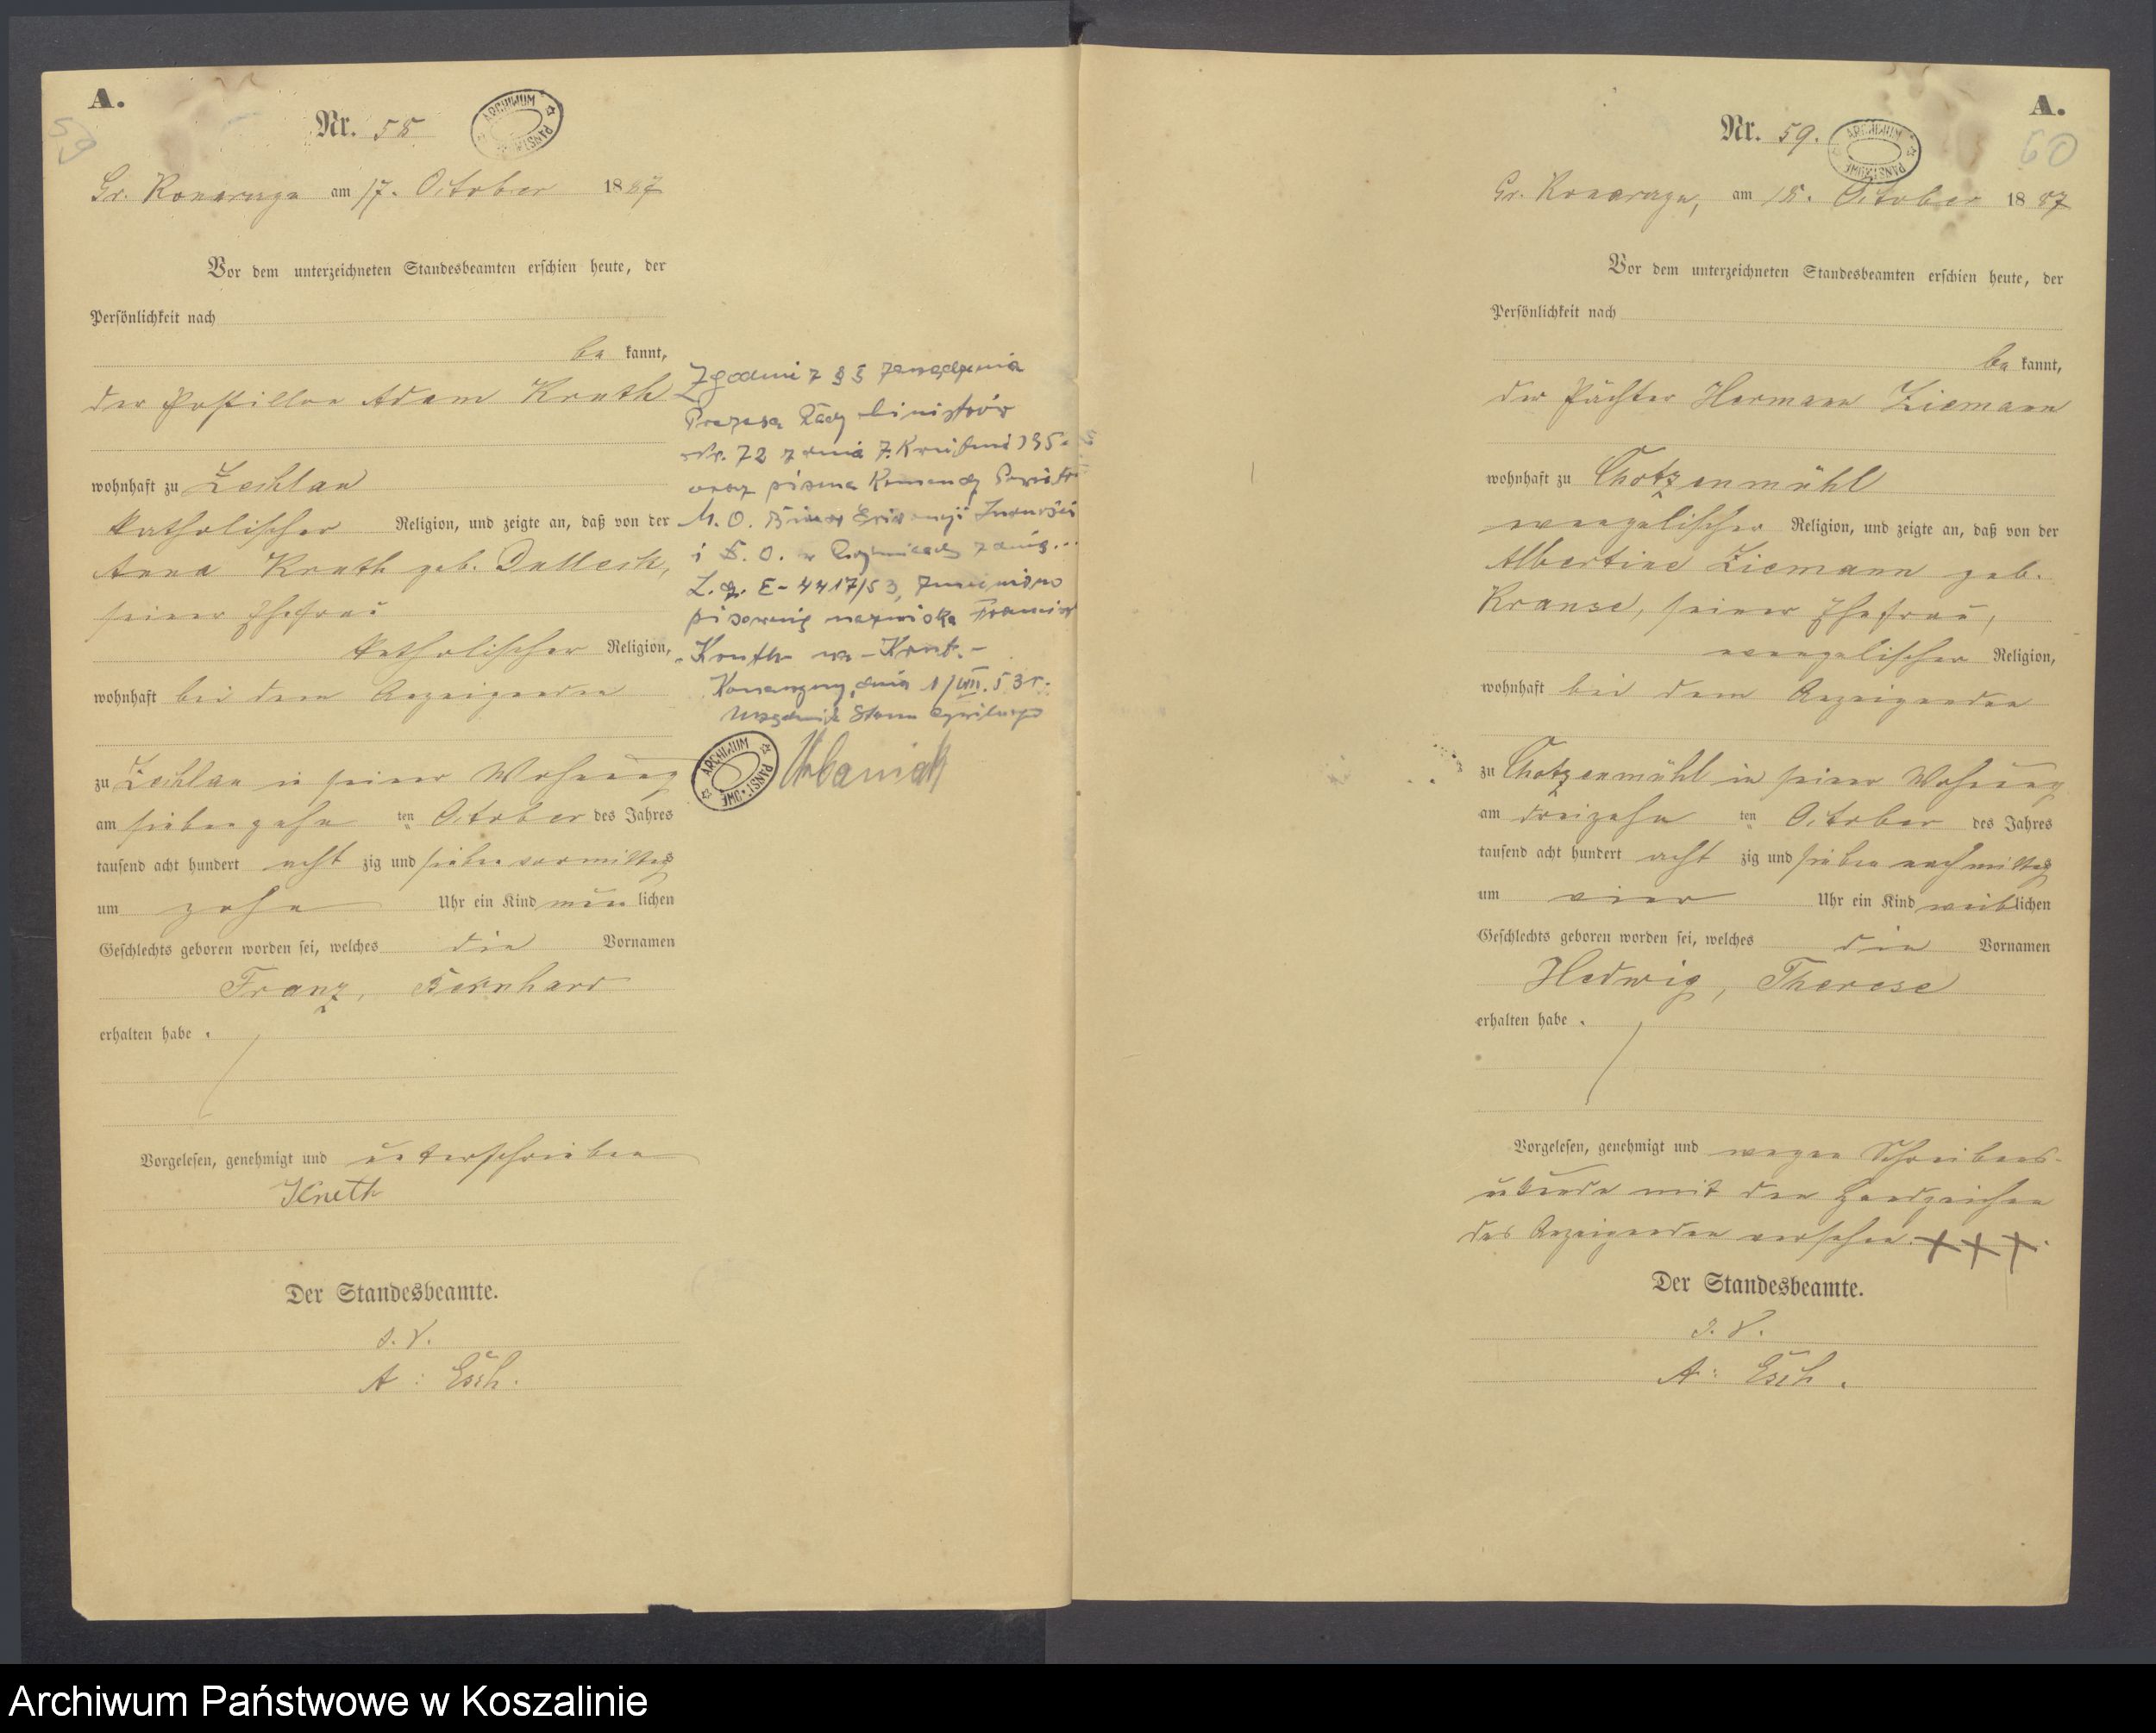 A.
59
Nr. 58
ARCHIWUM PAŃSTWOWE
Gr. Konarczyn am 17. October 1887
Vor dem unterzeichneten Standesbeamten erschien heute, der
Persönlichkeit nach
be kannt,
der Postillon Adam
wohnhaft zu Zechlau
katholischer Religion, und zeigte an, daß von der
Anna geb.
seiner Ehefrau
katholischer Religion,
wohnhaft bei dem Anzeigenden
zu Zechlau in seiner Wohnung
am siebenzehn ten October des Jahres
tausend acht hundert acht zig und sieben vormittags
um zehn Uhr ein Kind männ lichen
Geschlechts geboren worden sei, welches die Vornamen
Franz, Bernhard
erhalten habe.
Vorgelesen, genehmigt und unterschrieben
Der Standesbeamte.
J. V.
A: Esch.
Zgodnie z § 5 zarządzenia
Prezesa Rady Ministrów
Nr. 72 z dnia 7. Kwietnia
oraz pisma Komendy
M. O.
i
L. dz. E-4417/53, zmieniono
pisownię nazwiska
na
dnia 1/VIII. 53 r.
Urzędnik Stanu Cywilnego
ARCHIWUM PAŃSTWOWE
Urbaniak
A.
60
Nr. 59.
ARCHIWUM PAŃSTWOWE
Gr. Konarczyn, am 18. October 1887
Vor dem unterzeichneten Standesbeamten erschien heute, der
Persönlichkeit nach
be kannt,
der Pächter Hermann Ziemann
wohnhaft zu Chotzenmühl
evangelischer Religion, und zeigte an, daß von der
Albertine Ziemann geb.
Krause, seiner Ehefrau,
evangelischer Religion,
wohnhaft bei dem Anzeigenden
zu Chotzenmühl in seiner Wohnung
am dreizehn ten October des Jahres
tausend acht hundert acht zig und sieben nachmittags
um vier Uhr ein Kind weib lichen
Geschlechts geboren worden sei, welches die Vornamen
Hedwig, Therese
erhalten habe.
Vorgelesen, genehmigt und wegen Schreibens-
unkunde mit den Handzeichen
des Anzeigenden versehen. + + +.
Der Standesbeamte.
J. V.
A: Esch.
Archiwum Państwowe w Koszalinie